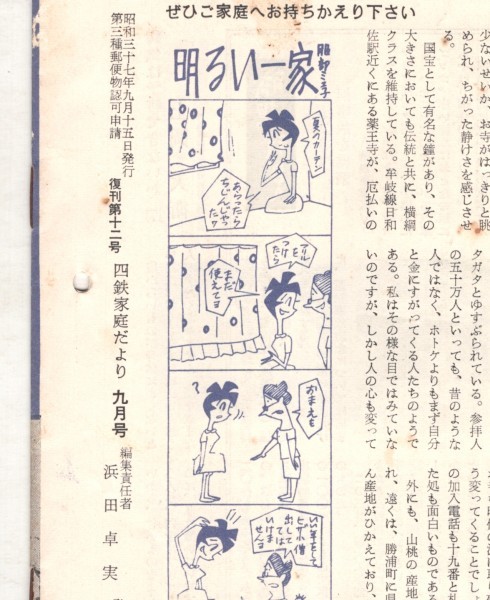 ぜひご家庭へお持ちかえり下さい
少ないせいか、お寺がはっきりと眺
められ、ちがった静けさを感じさせ
る。
国宝として有名な鐘があり、その
大きさにおいても伝統と共に、横綱
クラスを維持している。牟岐線日和
佐駅近くにある薬王寺が、厄払いの
タガタとゆすぶられている。参拝人
の五十万人といっても、昔のような
人ではなく、ホトケよりもまず自分
と金にすがってくる人たちのようで
ある。私はその様な目ではみていな
いのですが、しかし人の心も変って
う変ってくることでし
の加入電話も十九番と
た処も面白いものである
外にも、山桃の産地
れ、遠くは、勝浦町に
ん産地がひかえており、
明るい一家
服部ミキ
夏のカーテン
あらったら
ちぢんじゃっ
た?
フリルを
つけ
たら
まだ
使えてす
おまえも
?
いい年をして
ヒザ小僧
出して
ては
いけま
せんヨ
昭和三十七年九月十五日発行
第三種郵便物認可申請
復刊第十二号
四鉄家庭だより
九月号
編集責任者
浜田卓実